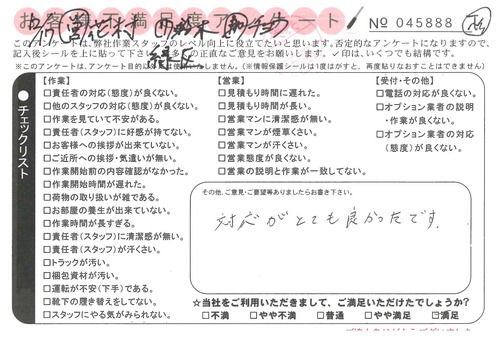 お客様満足度アンケート №045888
このアンケートは、弊社作業スタッフのレベル向上に役立てたいと思います。否定的なアンケートになりますので、
記入後シールを上に貼って下さい。多くの正直なご意見をお願いします。✓印は、いくつでも結構です。
(※このアンケートは、アンケート目的以外には使用いたしません。)(※情報保護シールは1度はがすと、再度貼りなおすことはできません)
チェックリスト
【作業】
□責任者の対応(態度)が良くない。
□他のスタッフの対応(態度)が良くない。
□作業を見ていて不安がある。
□責任者(スタッフ)に好感が持てない。
□お客様への挨拶が出来ていない。
□ご近所への挨拶・気遣いが無い。
□作業開始前の内容確認がなかった。
□作業開始時間が遅れた。
□荷物の取り扱いが雑である。
□お部屋の養生が出来ていない。
□作業時間が長すぎる。
□責任者(スタッフ)に清潔感が無い。
□責任者(スタッフ)が汗くさい。
□トラックが汚い。
□梱包資材が汚い。
□運転が不安(下手)である。
□靴下の履き替えをしてない。
□スタッフにやる気がみられない。
【営業】
□見積もり時間に遅れた。
□見積もり時間が長い。
□営業マンに清潔感が無い。
□営業マンが煙草くさい。
□営業マンが汗くさい。
□営業態度が良くない。
□営業の説明と作業が一致してない。
【受付・その他】
□電話の対応が良くない。
□オプション業者の説明
・作業が良くない。
□オプション業者の対応
(態度)が良くない。
その他、ご意見・ご要望等ありましたらお書き下さい。
対応がとても良かったです。
☆当社をご利用いただきまして、ご満足いただけたでしょうか?
□不満 □やや不満 □普通 □やや満足 ☑満足